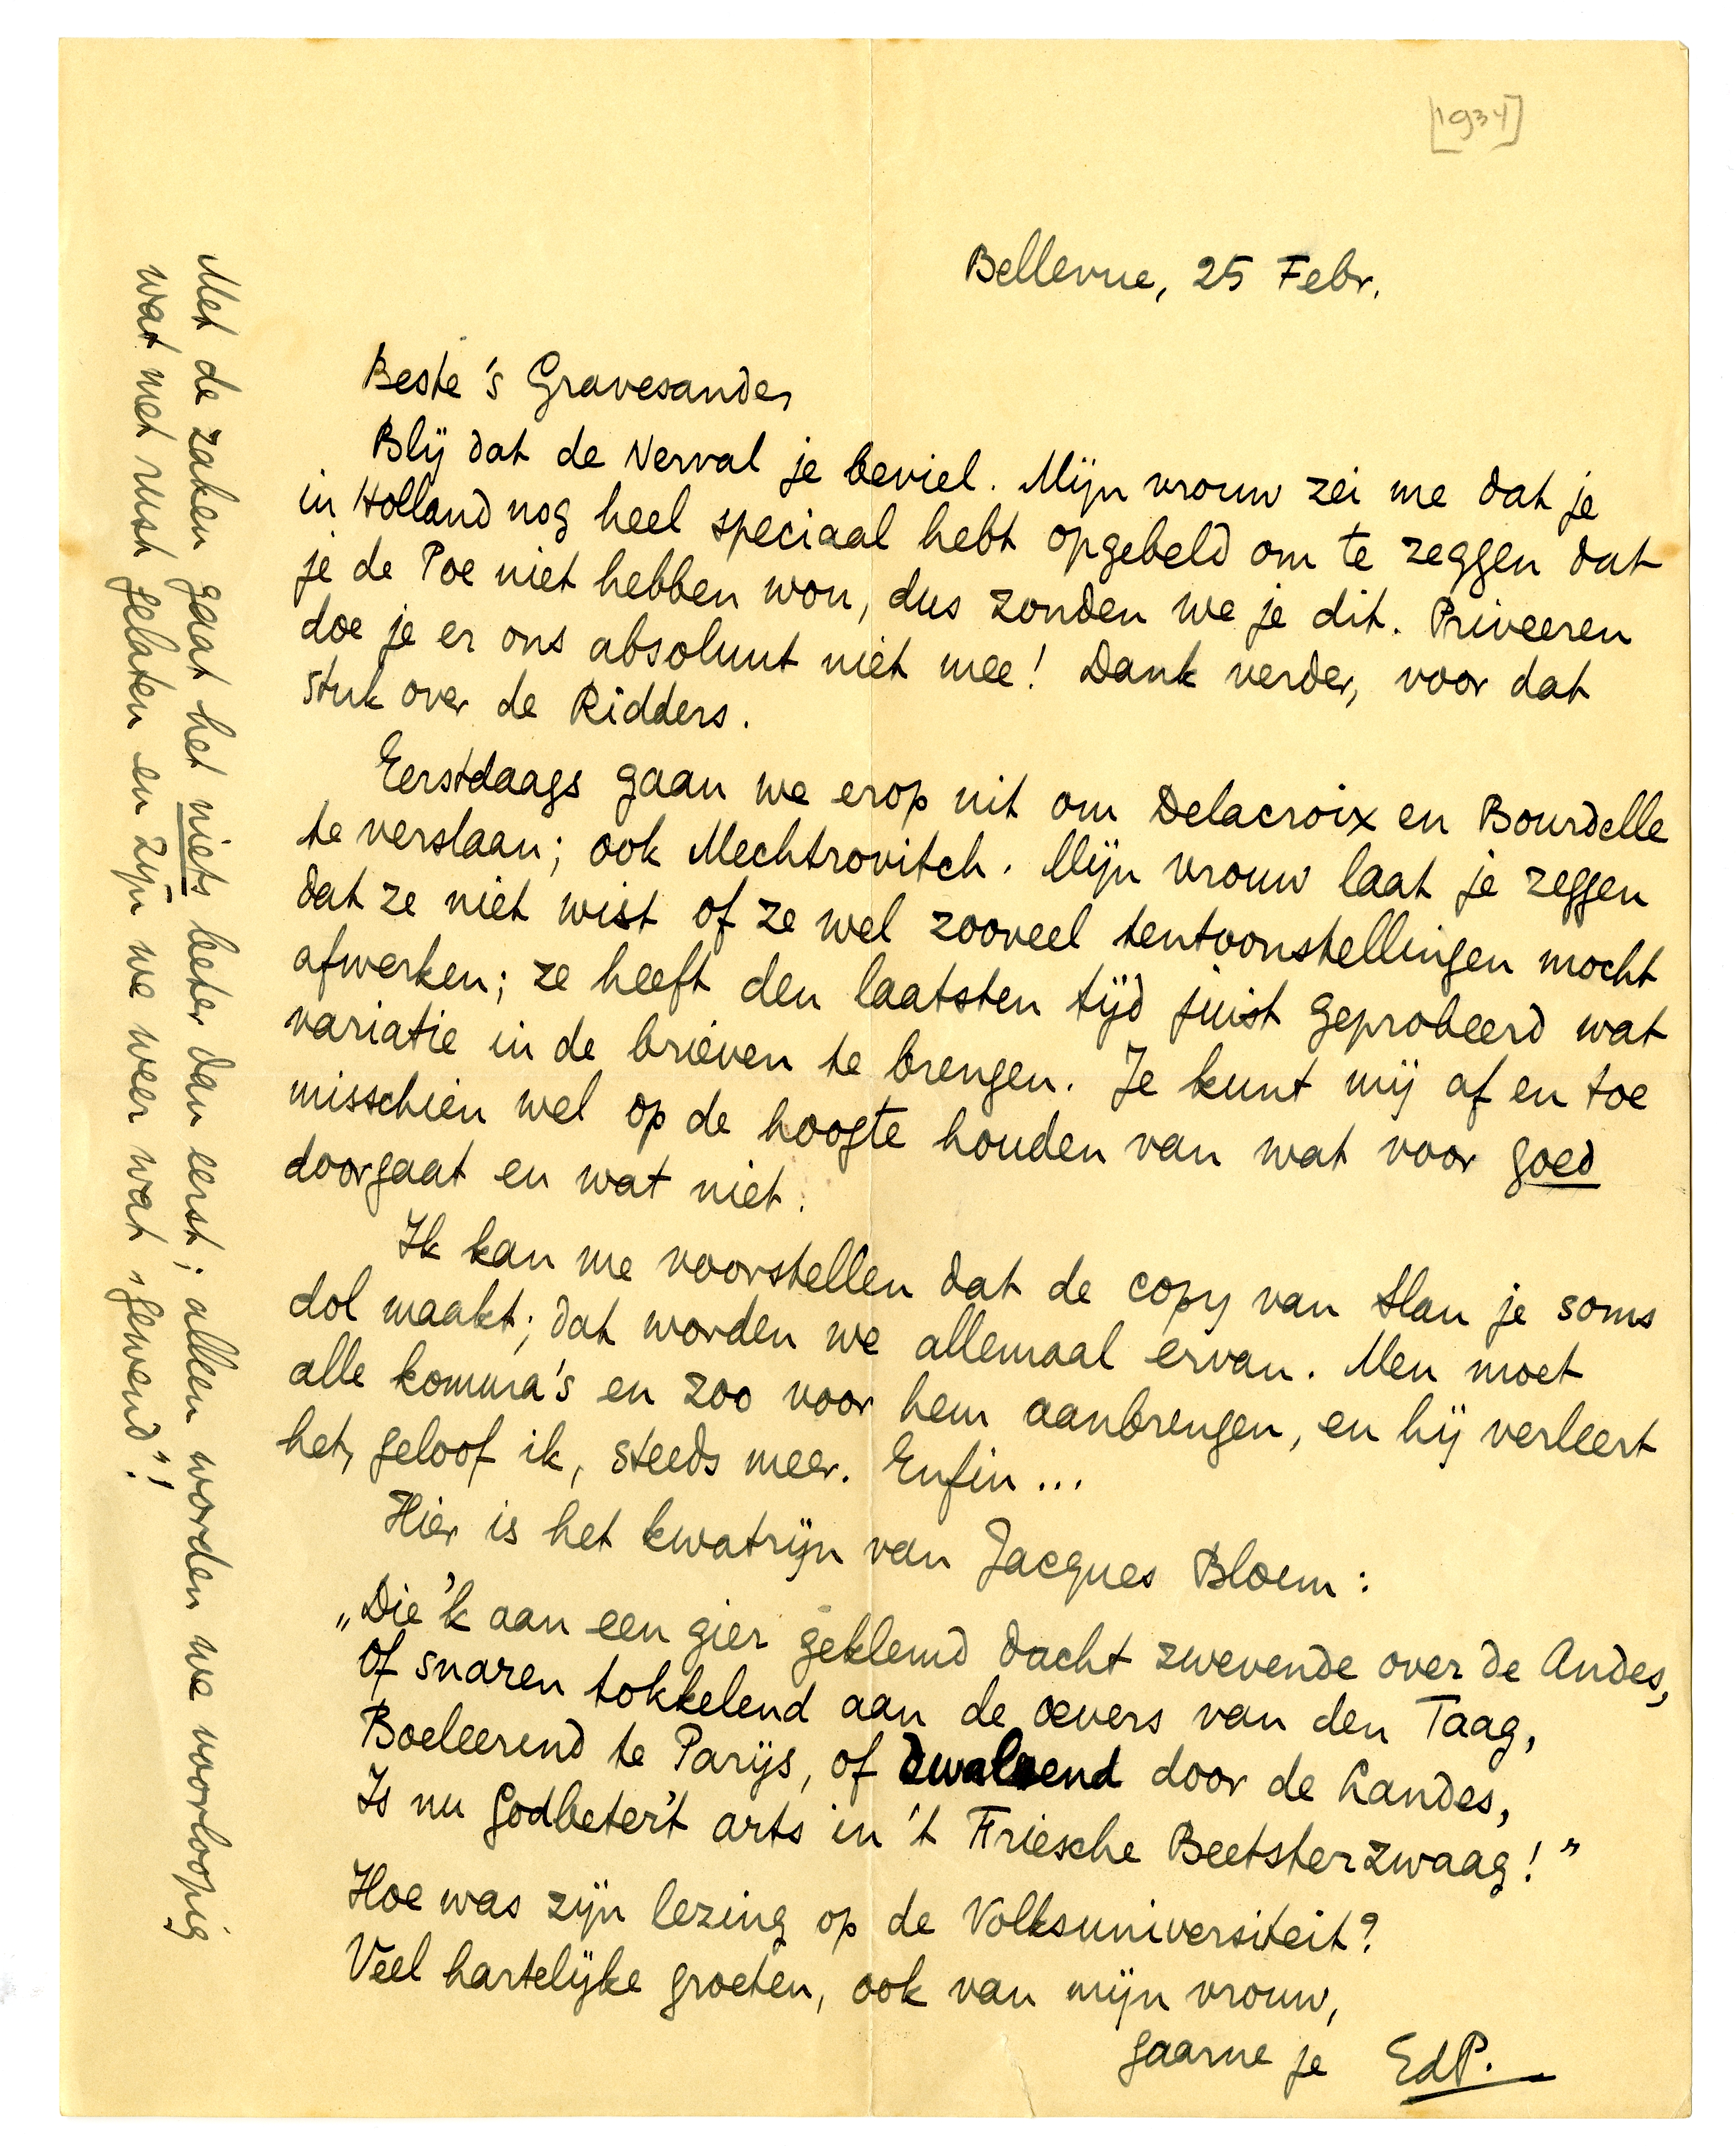 [1934]
Bellevue, 25 Febr.
Beste 's Gravesande,
Blij dat de Nerval je beviel. Mijn vrouw zei me dat je
in Holland nog heel speciaal hebt opgebeld om te zeggen dat
je de Poe niet hebben wou, dus zonden we je dit. Priveeren
doe je er ons absoluut niet mee! Dank verder, voor dat
stuk over de Ridders.
Eerstdaags gaan we erop uit om Delacroix en Bourdelle
te verslaan; ook Mechtrovitch. Mijn vrouw laat je zeggen
dat ze niet wist of ze wel zooveel tentoonstellingen mocht
afwerken; ze heeft den laatsten tijd juist geprobeerd wat
variatie in de brieven te brengen. Je kunt mij af en toe
misschien wel op de hoogte houden van wat voor goed
doorgaat en wat niet.
Ik kan me voorstellen dat de copy van Slau je soms
dol maakt; dat worden we allemaal ervan. Men moet
alle komma's en zoo voor hem aanbrengen, en hij verleert
het, geloof ik, steeds meer. Enfin...
Hier is het kwatrijn van Jacques Bloem:
„Die 'k aan een gier geklemd dacht zwevende over de Andes,
Of snaren tokkelend aan de oevers van den Taag,
Boeleerend te Parijs, of dwalend door de Landes,
Is nu godbeter't arts in 't Friesche Beetsterzwaag!”
Hoe was zijn lezing op de Volksuniversiteit?
Veel hartelijke groeten, ook van mijn vrouw,
gaarne je EdP.
Met de zaken gaat het niets beter dan eerst; alleen worden we voorloopig
wat met rust gelaten en zijn we weer wat „gewend”!